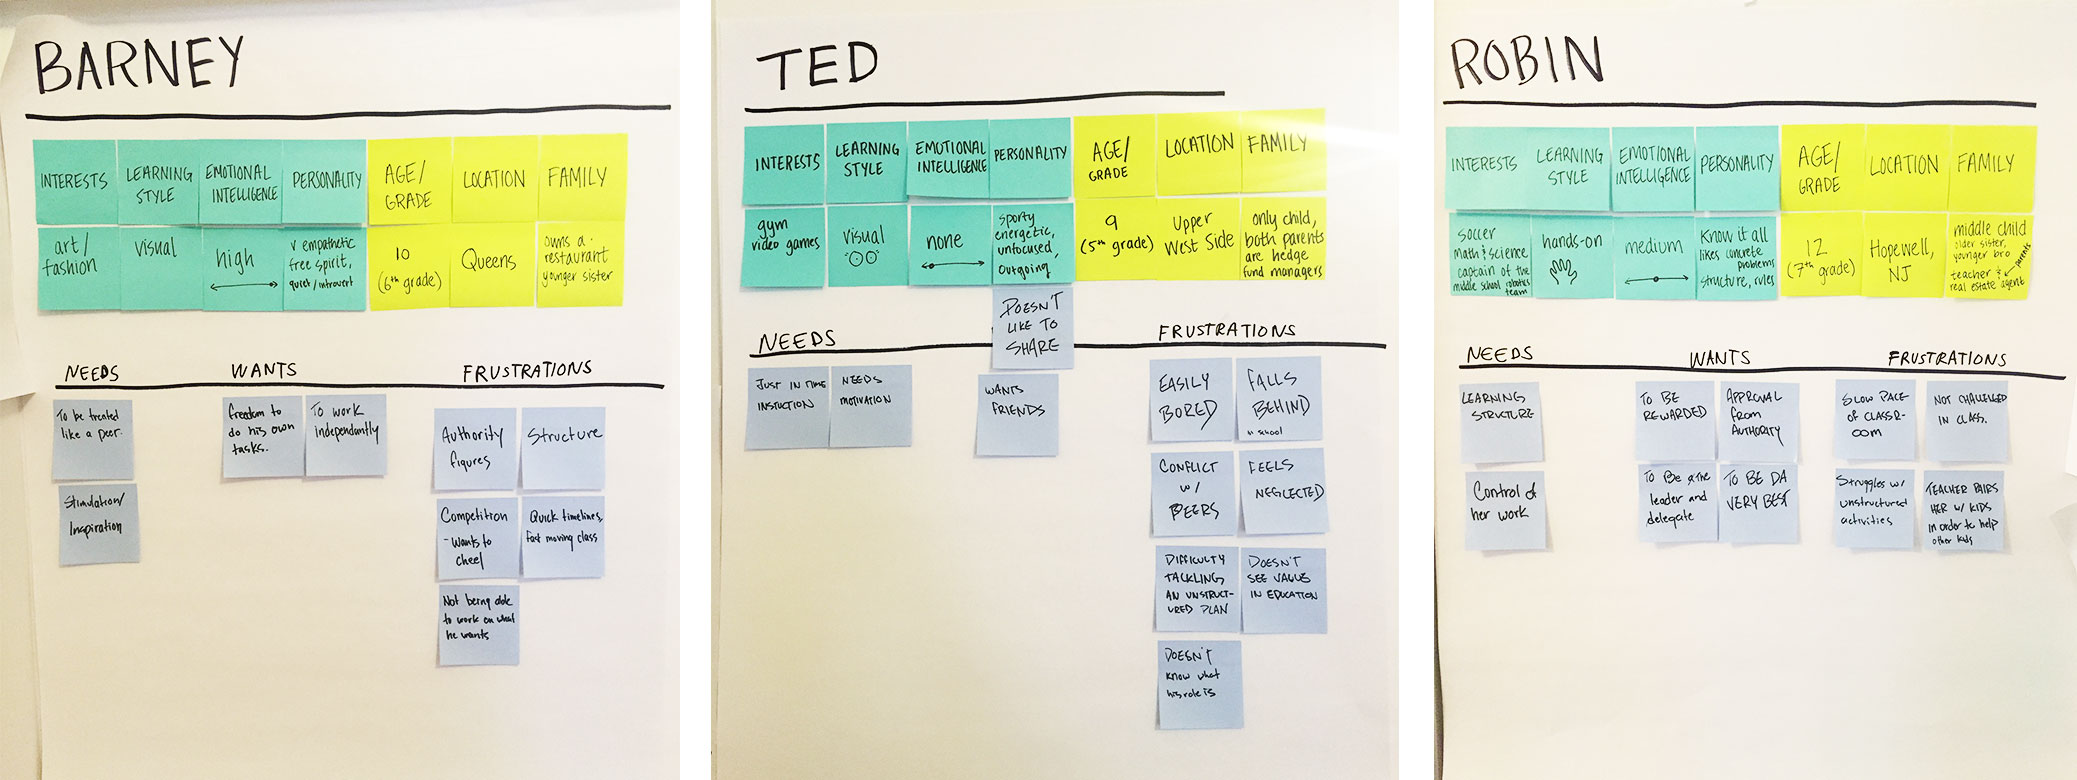 BARNEY
INTERESTS
LEARNING
STYLE
EMOTIONAL
INTELLIGENCE
PERSONALITY
AGE/
GRADE
LOCATION
FAMILY
art/
fashion
visual
high
v empathetic
free spirit,
quiet/introvert
10
(6th grade)
Queens
owns a
restaurant
younger sister
NEEDS
WANTS
FRUSTRATIONS
To be treated
like a peer.
Stimulation/
Inspiration
freedom to
do his own
tasks.
To work
independantly
Authority
figures
Structure
Competition
- Wants to
Quick timelines,
fast moving class
Not being able
to work on what
he wants
TED
INTERESTS
LEARNING
STYLE
EMOTIONAL
INTELLIGENCE
PERSONALITY
AGE/
GRADE
LOCATION
FAMILY
gym
video games
visual
none
sporty
energetic,
unfocused,
outgoing
9
(5th grade)
Upper
West Side
only child,
both parents
are hedge
fund managers
DOESN'T
LIKE TO
SHARE
NEEDS
FRUSTRATIONS
JUST IN TIME
INSTUCTION
NEEDS
MOTIVATION
WANTS
FRIENDS
EASILY
BORED
FALLS
BEHIND
in school
CONFLICT
W/
PEERS
FEELS
NEGLECTED
DIFFICULTY
TACKLING
AN UNSTRUCT-
URED PLAN
DOESN'T
SEE VALUE
IN EDUCATION
DOESN'T
know what
his role is
ROBIN
INTERESTS
LEARNING
STYLE
EMOTIONAL
INTELLIGENCE
PERSONALITY
AGE/
GRADE
LOCATION
FAMILY
soccer
math & science
captain of the
middle school robotics
team
hands-on
medium
Know it all
likes concrete
problems
structure, rules
12
(7th grade)
Hopewell,
NJ
middle child
older sister,
younger bro
teacher &
real estate agent
parents
NEEDS
WANTS
FRUSTRATIONS
LEARNING
STRUCTURE
Control of
her work
TO BE
REWARDED
APPROVAL
from
AUTHORITY
TO BE the
leader and
delegate
TO BE DA
VERY BEST
SLOW PACE
OF CLASSR-
OOM
NOT CHALLENGED
IN CLASS.
Struggles w/
unstructured
activities
TEACHER PAIRS
HER W/ KIDS
in order to help
other kids